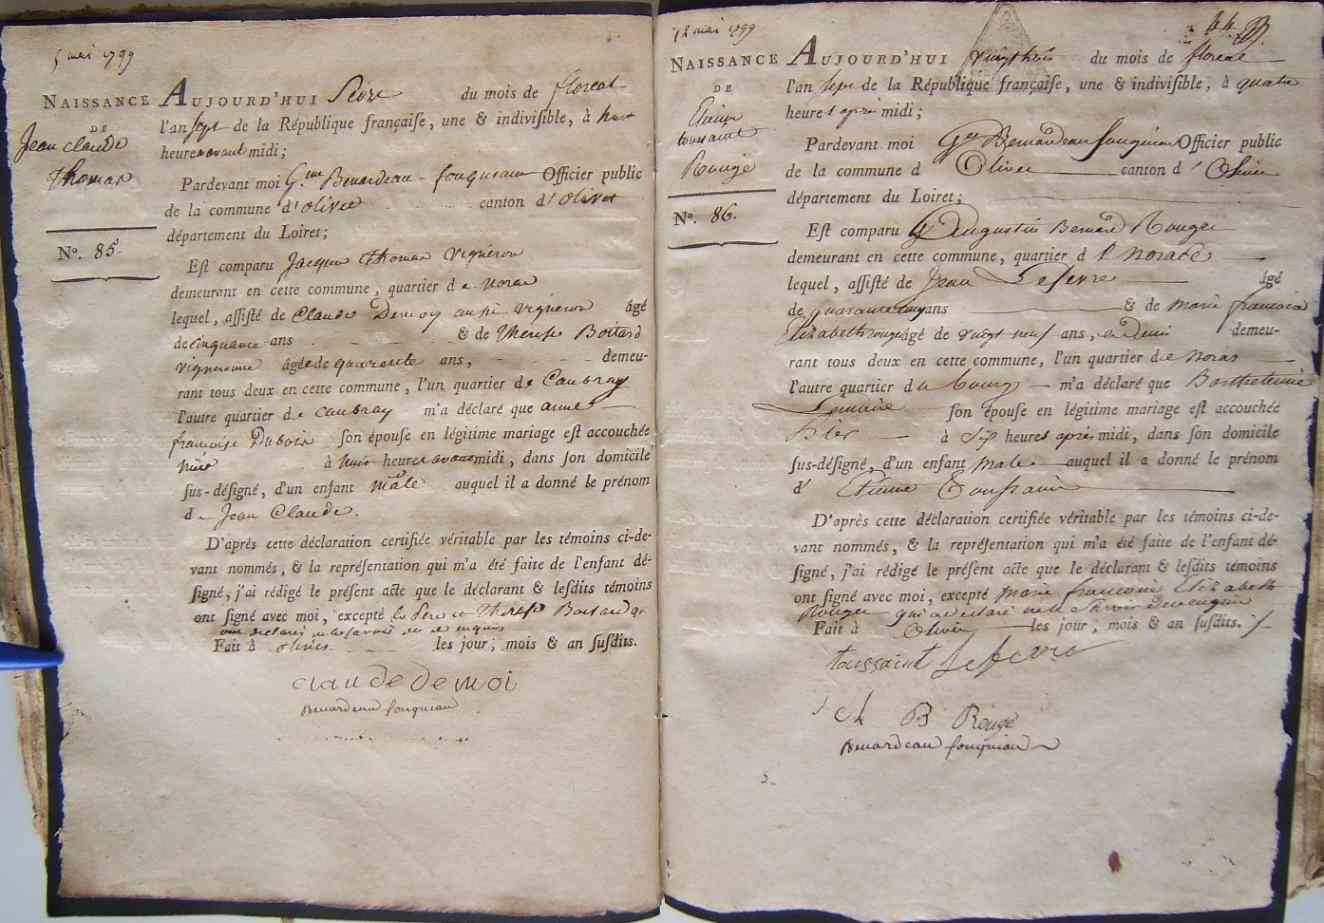 5 mai 1799
NAISSANCE
DE
Jean claude
Thomas
N°. 85.
AUJOURD'HUI Seize du mois de floreal
l'an sept de la République françaiſe, une & indiviſible, à huit
heures avant midi;
Pardevant moi G.me Benardeau - fouqueau Officier public
de la commune d'olivet canton d'olivet
département du Loiret;
Eſt comparu Jacques Thomas vigneron
demeurant en cette commune, quartier de noras
lequel, aſſiſté de Claude Demoy aussi vigneron âgé
de cinquante ans & de Therese Boitard
vigneronne âgée de quarante ans, demeu-
rant tous deux en cette commune, l'un quartier de Caubray
l'autre quartier de caubray m'a déclaré que anne
francoise Dubois ſon épouſe en légitime mariage eſt accouchée
à heures avant midi, dans ſon domicile
ſus-déſigné, d'un enfant mâle auquel il a donné le prénom
de Jean Claude.
D'après cette déclaration certifiée véritable par les témoins ci-de-
vant nommés, & la repréſentation qui m'a été faite de l'enfant dé-
ſigné, j'ai rédigé le préſent acte que le déclarant & leſdits témoins
ont ſigné avec moi, excepté le Pere et Therese Boitard qui
ont declaré ne le savoir de ce enquis
Fait à olivet les jour, mois & an ſuſdits.
claude demoi
Benardeau fouqueau
12 mai 1799
44
NAISSANCE
DE
Etienne
toussaint
Rouge
N°. 86.
AUJOURD'HUI vingt trois du mois de floreal
l'an sept de la République françaiſe, une & indiviſible, à quatre
heures après midi;
Pardevant moi G.me Benardeau fouqueau Officier public
de la commune d Olivet canton d'Olivet
département du Loiret;
Eſt comparu Augustin Bernard Rouge
demeurant en cette commune, quartier de noras
lequel, aſſiſté de Jean Lefevre âgé
de quarante cinq ans & de marie francoise
Elizabeth rouge âgé de vingt neuf ans, et Demi demeu-
rant tous deux en cette commune, l'un quartier de noras
l'autre quartier du bourg m'a déclaré que Barthelemie
Lemaire ſon épouſe en légitime mariage eſt accouchée
hier à Six heures après midi, dans ſon domicile
ſus-déſigné, d'un enfant male auquel il a donné le prénom
d' Etienne Toussaint
D'après cette déclaration certifiée véritable par les témoins ci-de-
vant nommés, & la repréſentation qui m'a été faite de l'enfant dé-
ſigné, j'ai rédigé le préſent acte que le déclarant & leſdits témoins
ont ſigné avec moi, excepté marie francoise Elizabeth
Rouge qui a declaré ne le Savoir de ce enquis
Fait à Olivet les jour, mois & an ſuſdits.
toussaint Lefevre
B Rouge
Benardeau fouqueau